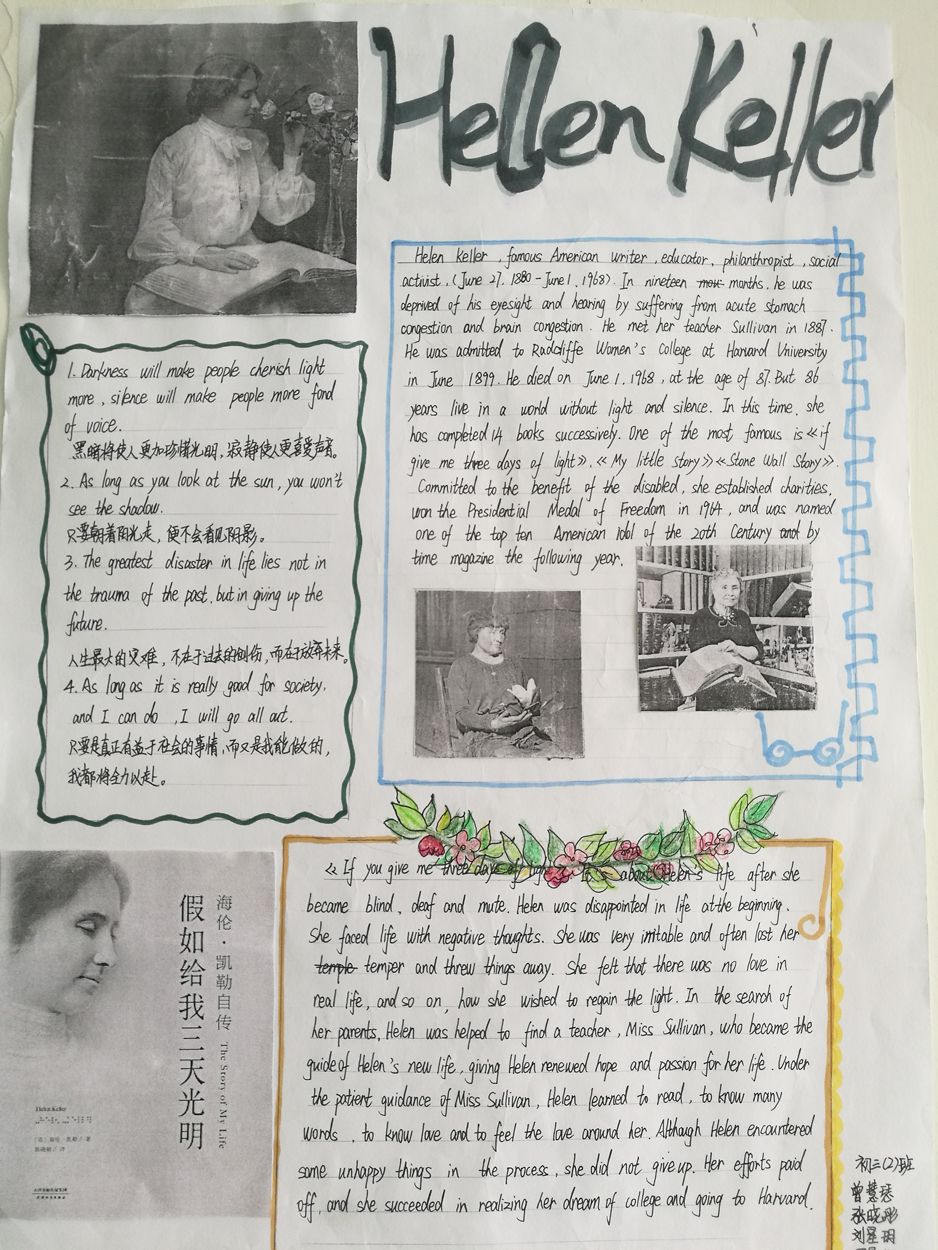 Hellen Keller
Helen Keller, famous American writer, educator, philanthropist, social
activist, (June 27. 1880-June 1, 1968). In nineteen mow months, he was
deprived of his eyesight and hearing by suffering from acute stomach
congestion and brain congestion. He met her teacher Sullivan in 1887.
He was admitted to Radcliffe Women's College at Harvard University
in June 1899. He died on June 1, 1968, at the age of 87. But 86
years live in a world without light and silence. In this time, she
has completed 14 books successively. One of the most famous is «if
give me three days of light». «My little story» «Stone Wall Story».
Committed to the benefit of the disabled, she established charities,
won the Presidential Medal of Freedom in 1964, and was named
one of the top ten American Idol of the 20th Century and by
time magazine the following year.
1. Darkness will make people cherish light
more, silence will make people more fond
of voice.
黑暗将使人更加珍惜光明,寂静使人更喜爱声音。
2. As long as you look at the sun, you won't
see the shadow.
只要朝着阳光走,便不会看见阴影。
3. The greatest disaster in life lies not in
the trauma of the past, but in giving up the
future.
人生最大的灾难,不在于过去的创伤,而在于放弃未来。
4. As long as it is really good for society,
and I can do, I will go all out.
只要是真正有益于社会的事情,而又是我能做的,
我都将全力以赴。
海伦·凯勒自传 The Story of My Life
假如给我三天光明
Helen Keller
« If you give me three days of light about Helen's life after she
became blind, deaf and mute. Helen was disappointed in life at the beginning.
She faced life with negative thoughts. She was very irritable and often lost her
temple temper and threw things away. She felt that there was no love in
real life, and so on, how she wished to regain the light. In the search of
her parents, Helen was helped to find a teacher, Miss Sullivan, who became the
guide of Helen's new life, giving Helen renewed hope and passion for her life. Under
the patient guidance of Miss Sullivan, Helen learned to read, to know many
words, to know love and to feel the love around her. Although Helen encountered
some unhappy things in the process, she did not give up. Her efforts paid
off, and she succeeded in realizing her dream of college and going to Harvard.
初三(2)班
曾慧琴
张晓彤
刘星玥